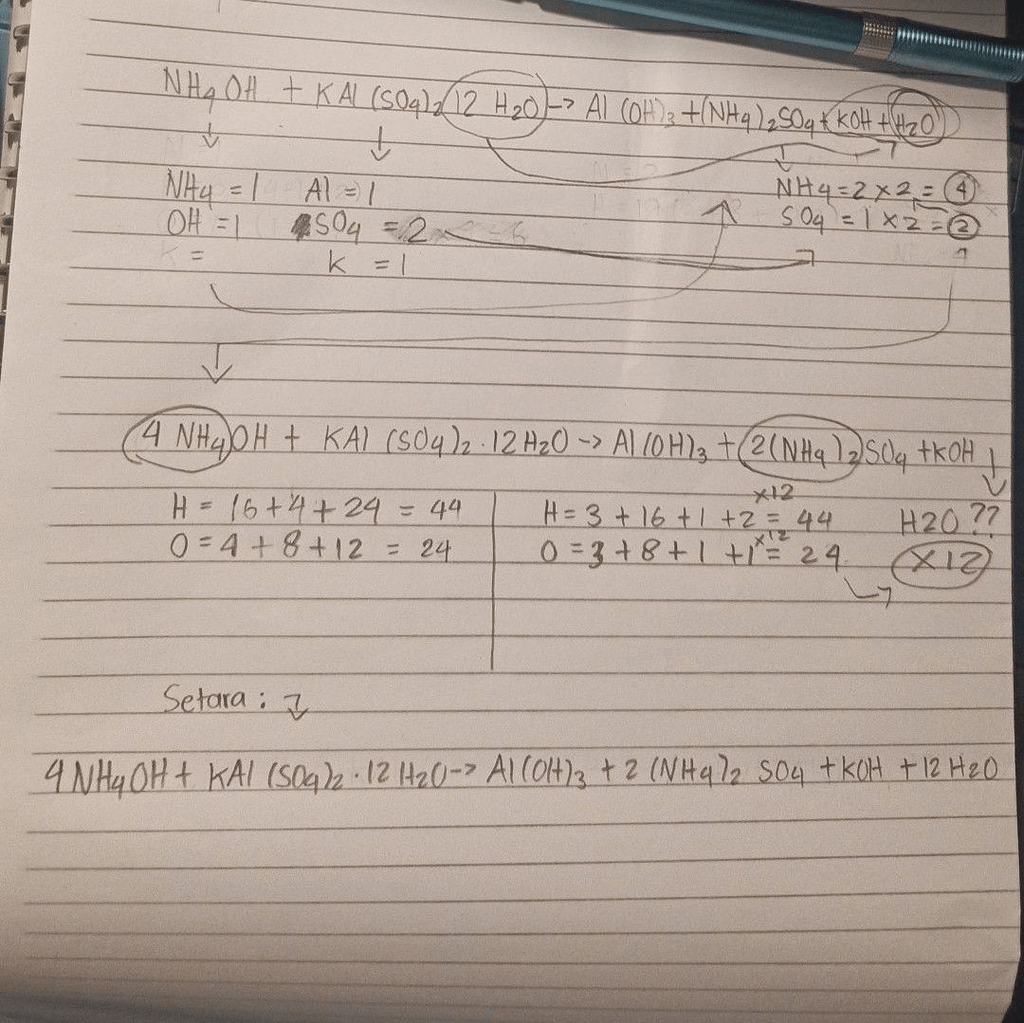 NH4OH + KAl (SO4)2 12 H2O -> Al (OH)3 + (NH4)2SO4 + KOH + H2O
NH4 = 1 Al = 1 NH4 = 2 x 2 = 4
OH = 1 SO4 = 2 SO4 = 1 x 2 = 2
K = K = 1
4 NH4OH + KAl (SO4)2 · 12 H2O -> Al (OH)3 + 2(NH4)2SO4 + KOH
x12
H = 16 + 4 + 24 = 44 H = 3 + 16 + 1 + 2 = 44 H2O ??
x12
O = 4 + 8 + 12 = 24 O = 3 + 8 + 1 + 1 = 24 x12
Setara :
4 NH4OH + KAl (SO4)2 · 12 H2O -> Al (OH)3 + 2 (NH4)2 SO4 + KOH + 12 H2O